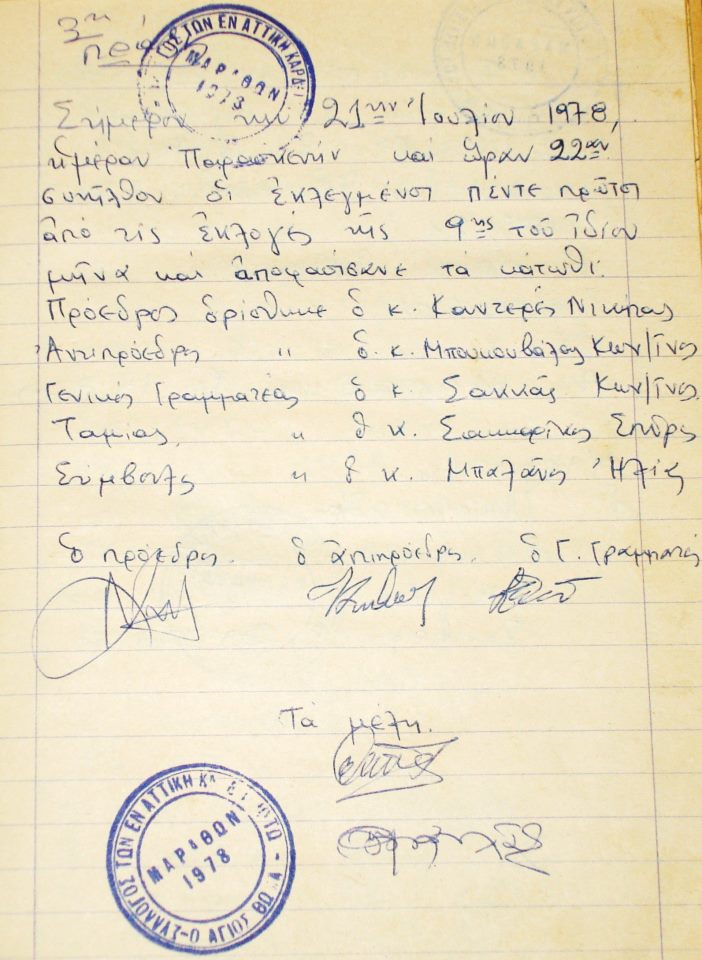 3η
πράξη
ΜΑΡΑΘΩΝ
1978
Σήμερον την 21ην Ἰουλίου 1978,
ἡμέραν Παρασκευήν καί ὥραν 22αν
συνῆλθον οἱ ἐκλεγμένοι πέντε πρῶτοι
ἀπό τίς ἐκλογές τῆς 9ης τοῦ ἰδίου
μῆνα καί ἀποφασίσανε τά κάτωθι:
Πρόεδρος ὁρίσθηκε ὁ κ. Καντερές Νικήτας
Ἀντιπρόεδρος " ὁ κ. Μπουκουβάλας Κων/τῖνος
Γενικός Γραμματέας ὁ κ. Σακκάς Κων/τῖνος
Ταμίας " ὁ κ. Σπύρος
Σύμβουλος " ὁ κ. Μπαλάνος Ἠλίας
ὁ πρόεδρος. ὁ ἀντιπρόεδρος. ὁ Γ. Γραμματεύς
Τά μέλη.
ΛΟΓΟΣ ΤΩΝ ΕΝ ΑΤΤΙΚΗ
Ο ΑΓΙΟΣ ΘΩΜΑ
ΜΑΡΑΘΩΝ
1978